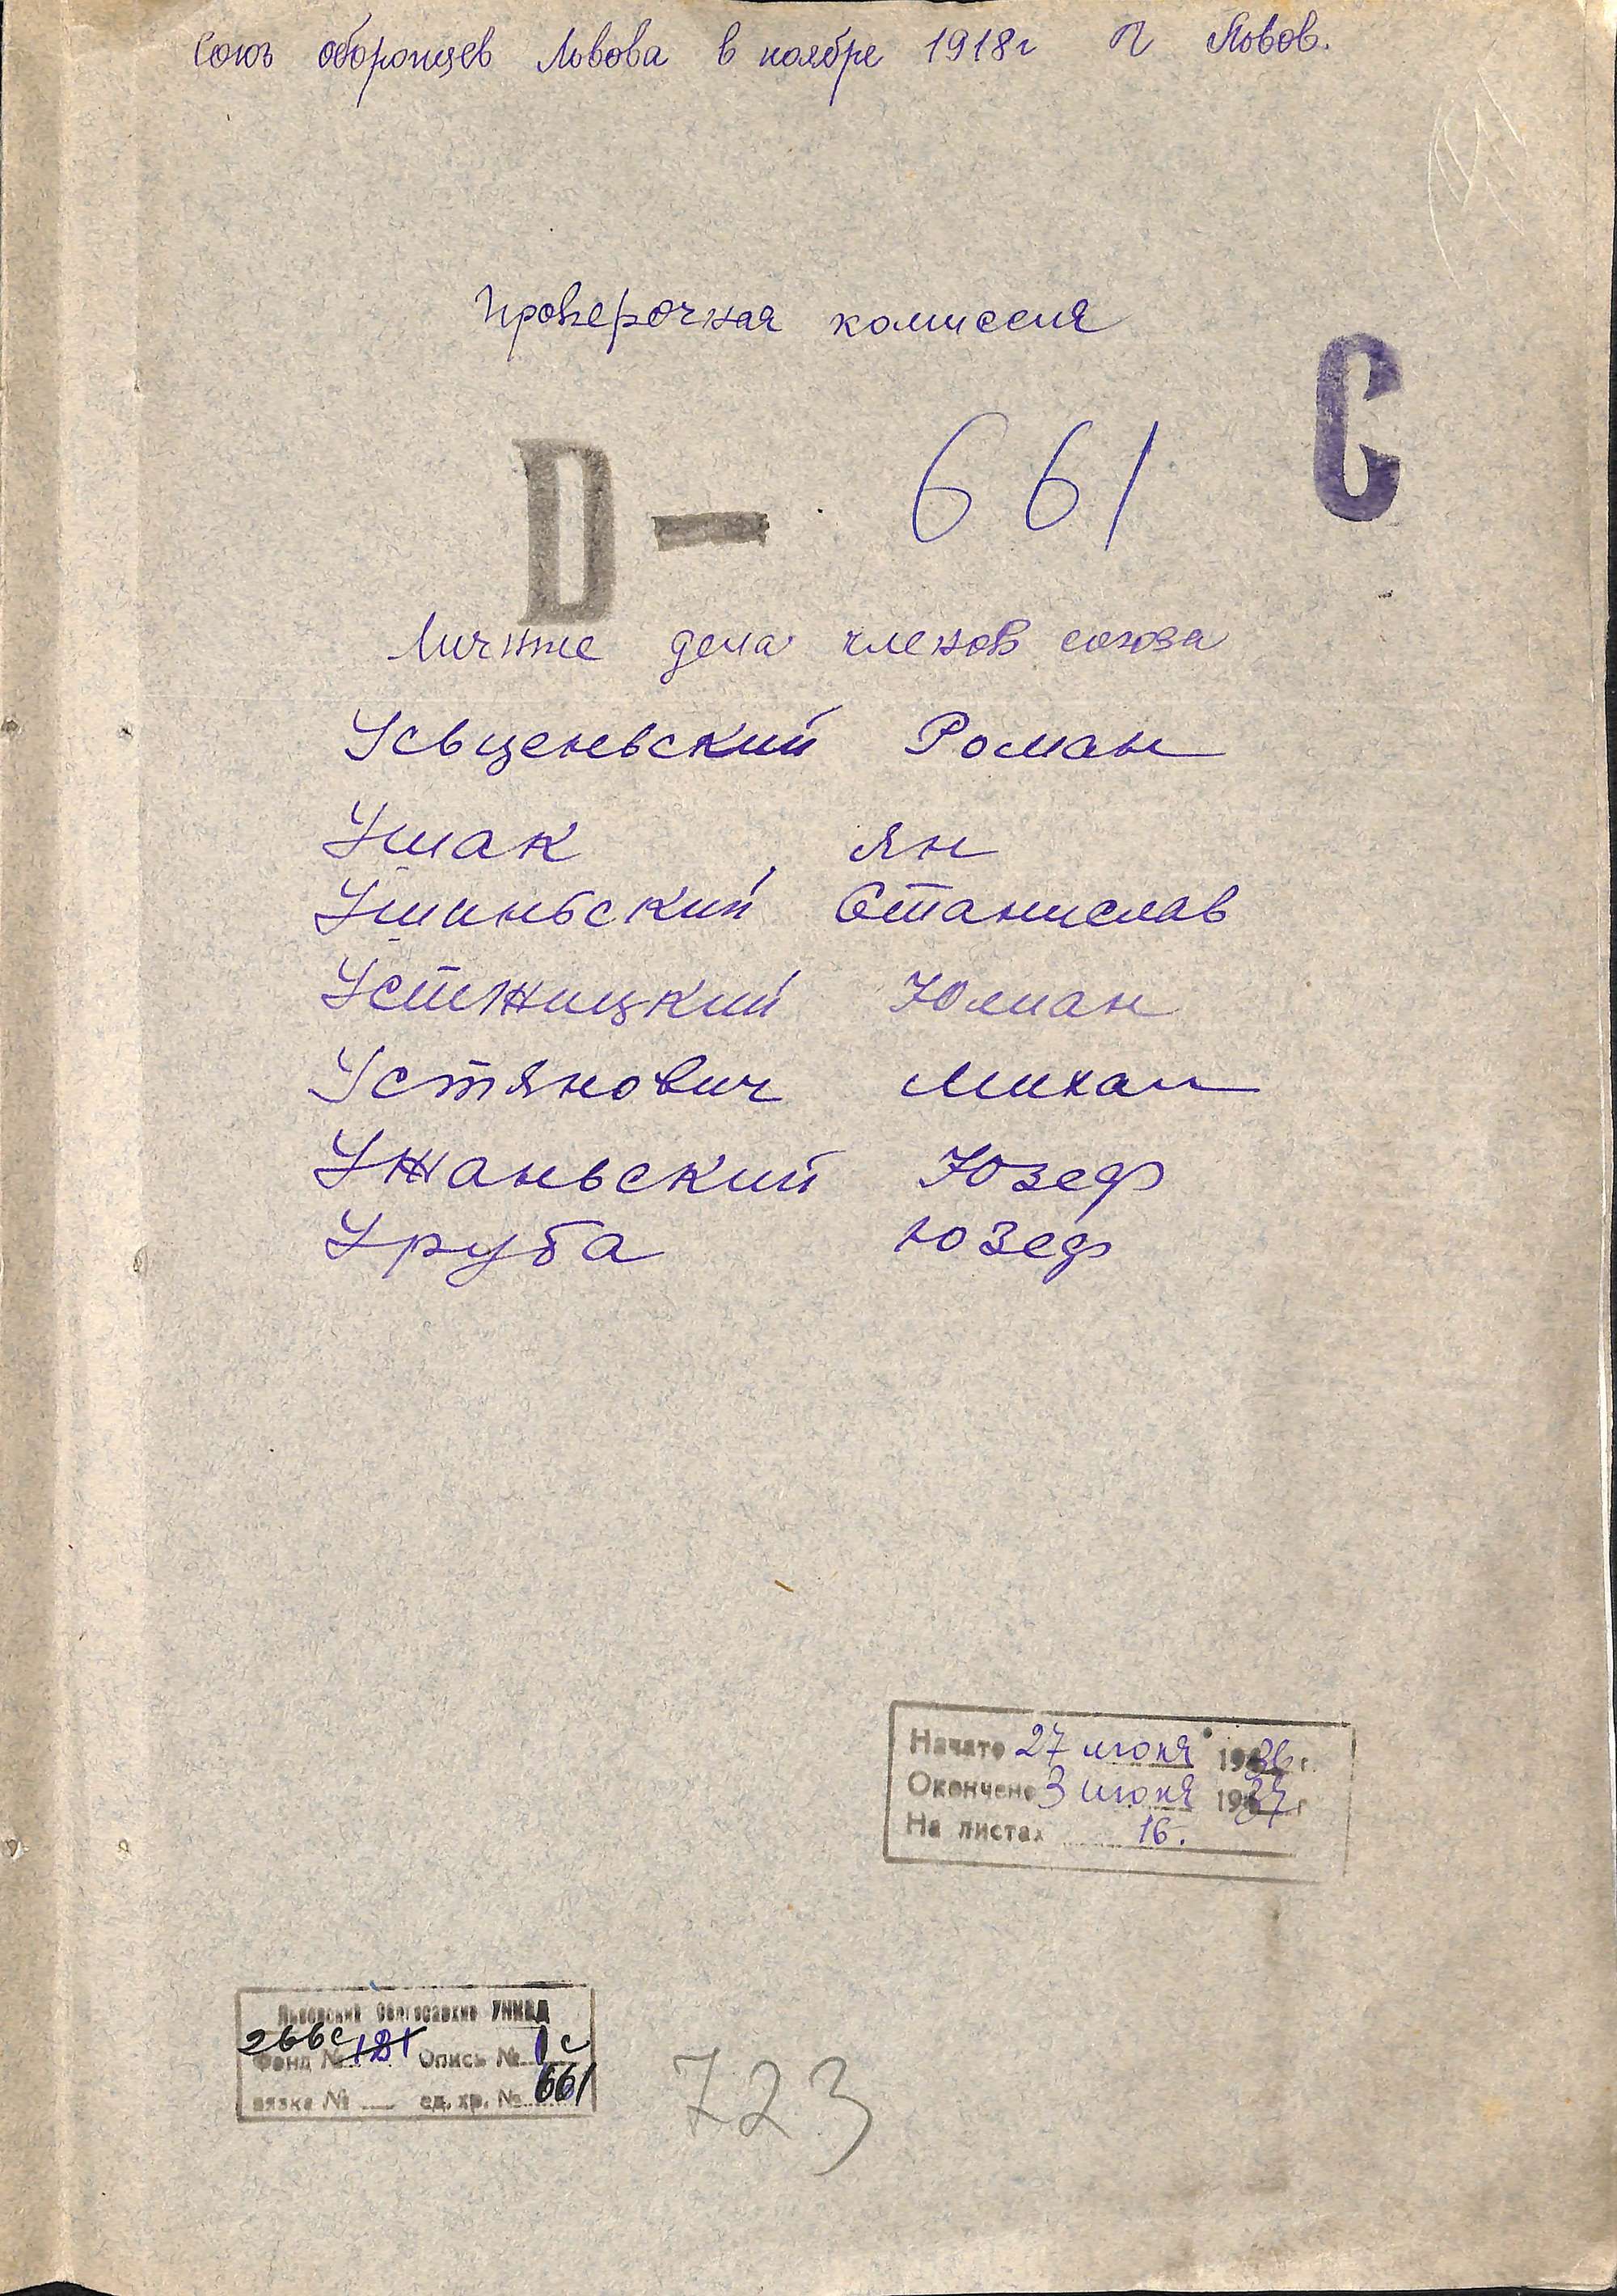 Союз оборонцев Львова в ноябре 1918г г Львов.
Проверочная комиссия
С
D — 661
Личные дела членов союза
Усьценьский Роман
Ушак Ян
Ушиньский Станислав
Устжицкий Юлиан
Устянович Михал
Ужаньский Юзеф
Уруба Юзеф
Начато 27 июня 1936 г.
Окончено 3 июня 1937 г
На листах 16.
Львовский Облгосархив УНКВД
266с
Фонд № 121 Опись № 1с
вязка № — ед. хр. № 661
723